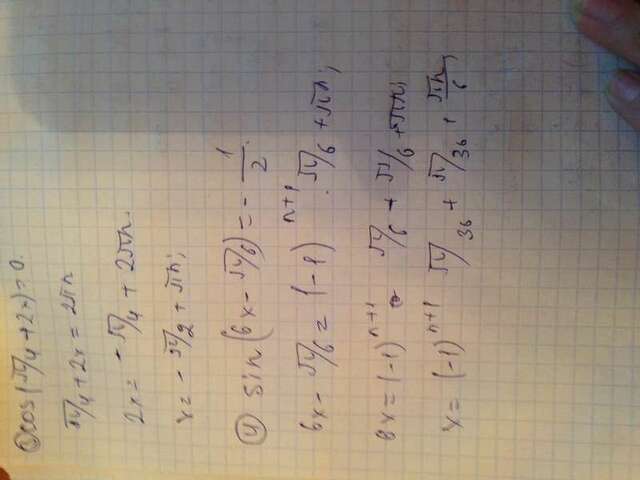 cos(π/4+2x)=0.
π/4+2x=2πn
2x=-π/4+2πn.
x=-π/2+πn;
④ sin(6x-π/6)=-1/2.
6x-π/6=(-1)^n+1 · π/6+πn;
6x=(-1)^n+1 π/6+π/6+πn;
x=(-1)^n+1 π/36+π/36+πn/6;